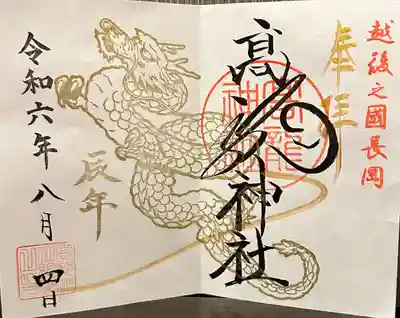 越後之國長岡
奉拝
髙龍神社
高龍
神社
辰年
令和六年八月四日